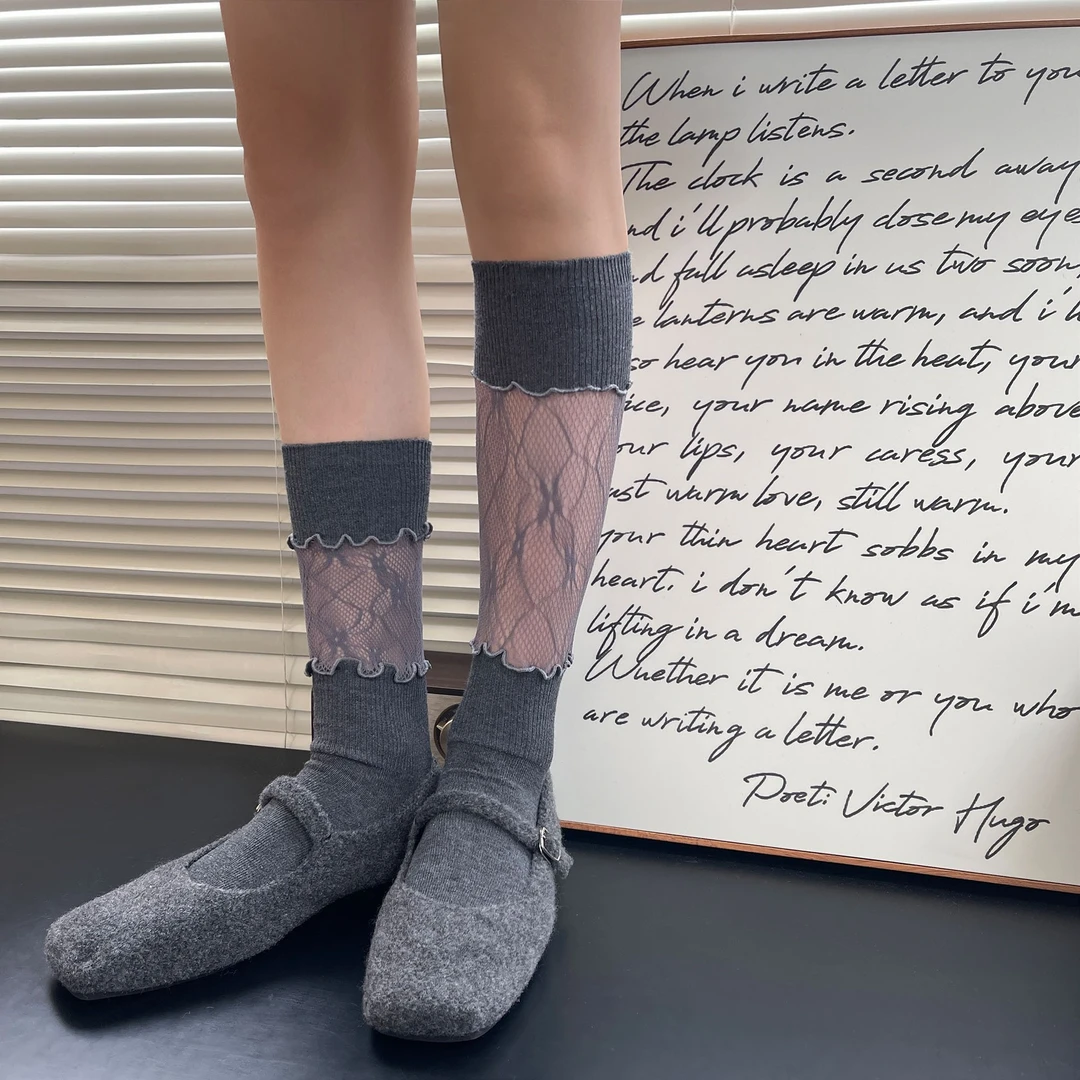 When i write a letter to you
the lamp listens.
The clock is a second away
nd i'll probably close my eyes
d fall asleep in us two soon,
e lanterns are warm, and i'll
so hear you in the heat, your
ice, your name rising above
our lips, your caress, your
ast warm love, still warm.
your thin heart sobbs in my
heart. i don't know as if i'm
lifting in a dream.
Whether it is me or you who
are writing a letter.
Poet: Victor Hugo